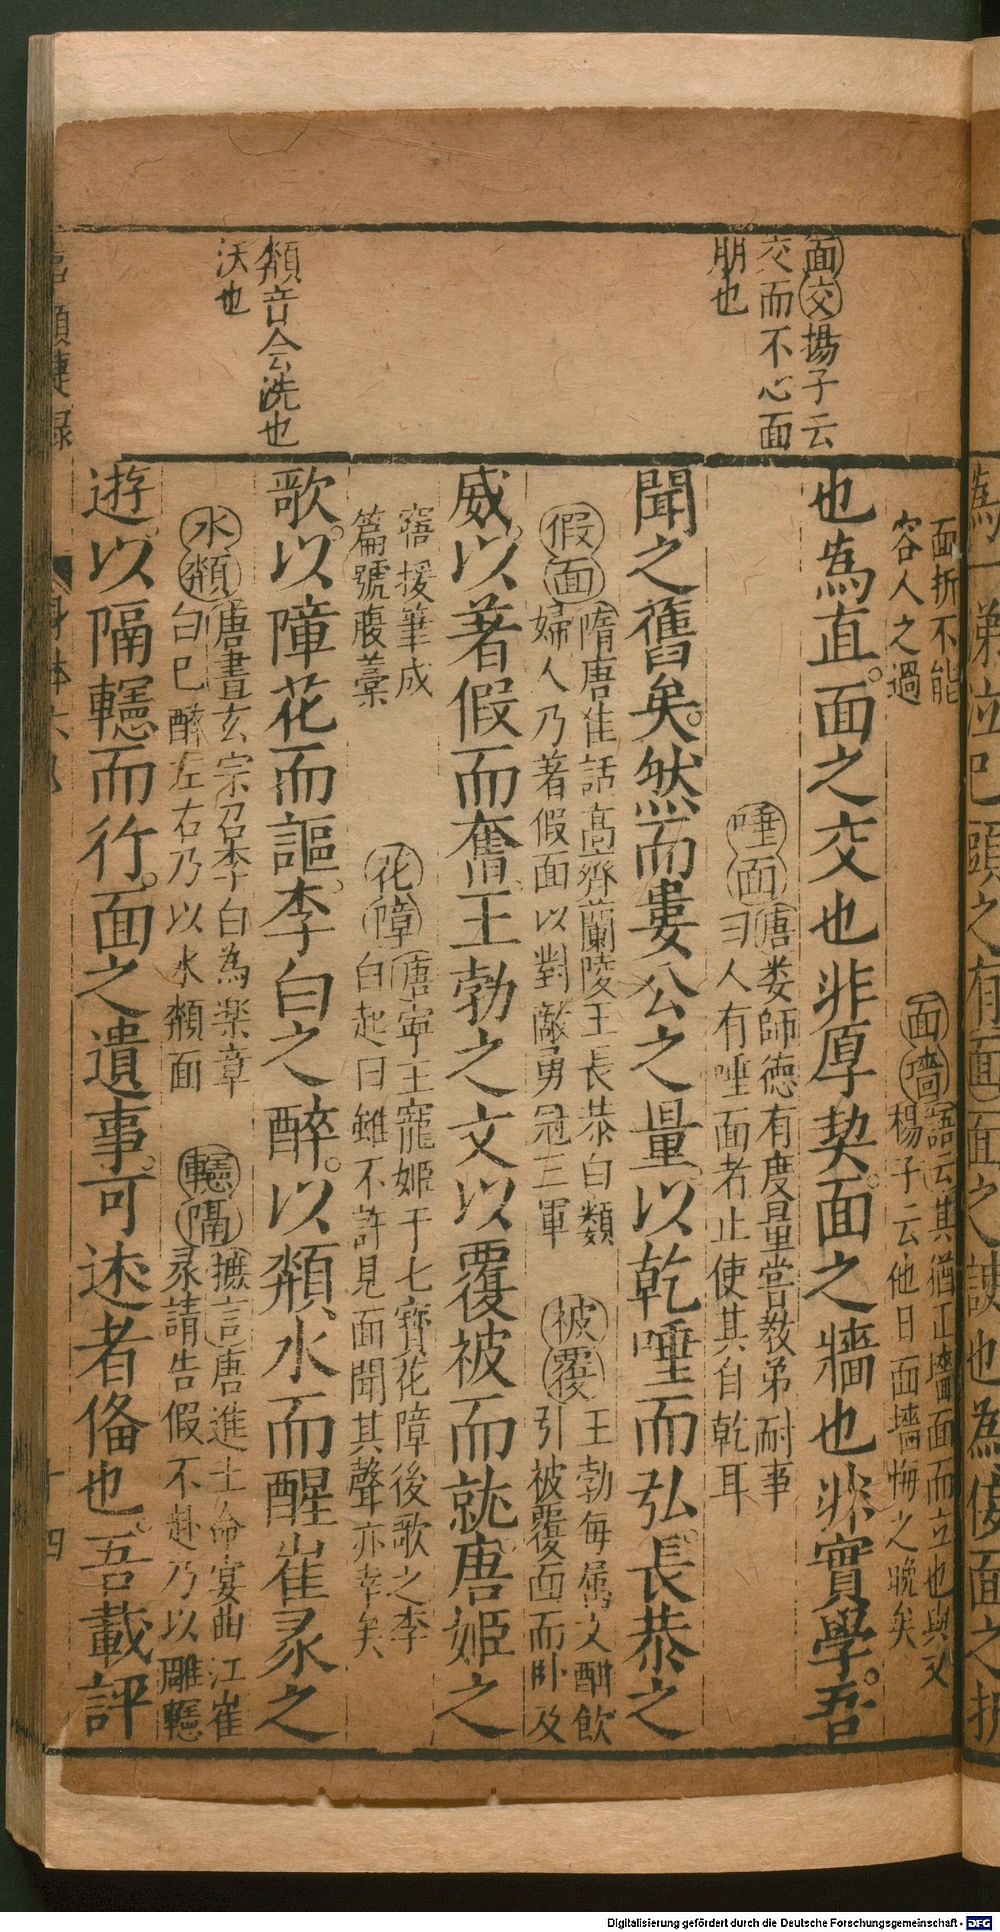 面交揚子云
交而不心面
朋也
頮音会洗也
沃也
面折不能
容人之過
面墻語云其猶正墻面而立也與又
楊子云他日面墻悔之晚矣
也為直。面之交也非厚契。面之牆也非實學。吾
唾面唐娄師德有度量嘗教弟耐事
曰人有唾面者止使其自乾耳
聞之舊矣。然而婁公之量。以乾唾而弘。長恭之
假面隋唐佳話高齊蘭陵王長恭白類
婦人乃著假面以對敵勇冠三軍
被覆王勃每属文酣飲
引被覆面而卧及
威。以著假而奮。王勃之文以覆被而就。唐姬之
寤援筆成
篇號腹藁
花障唐寧王寵姬于七寳花障後歌之李
白起曰雖不許見面聞其聲亦幸矣
歌。以障花而謳。李白之醉。以頮水而醒崔彔之
水頮唐書玄宗召李白為楽章
白巳醉左右乃以水頮面
轜隔摭言唐進士命宴曲江崔
彔請告假不赴乃以雕轜
遊。以隔轜而行。面之遺事。可述者俻也。吾載評
十四
Digitalisierung gefördert durch die Deutsche Forschungsgemeinschaft - DFG